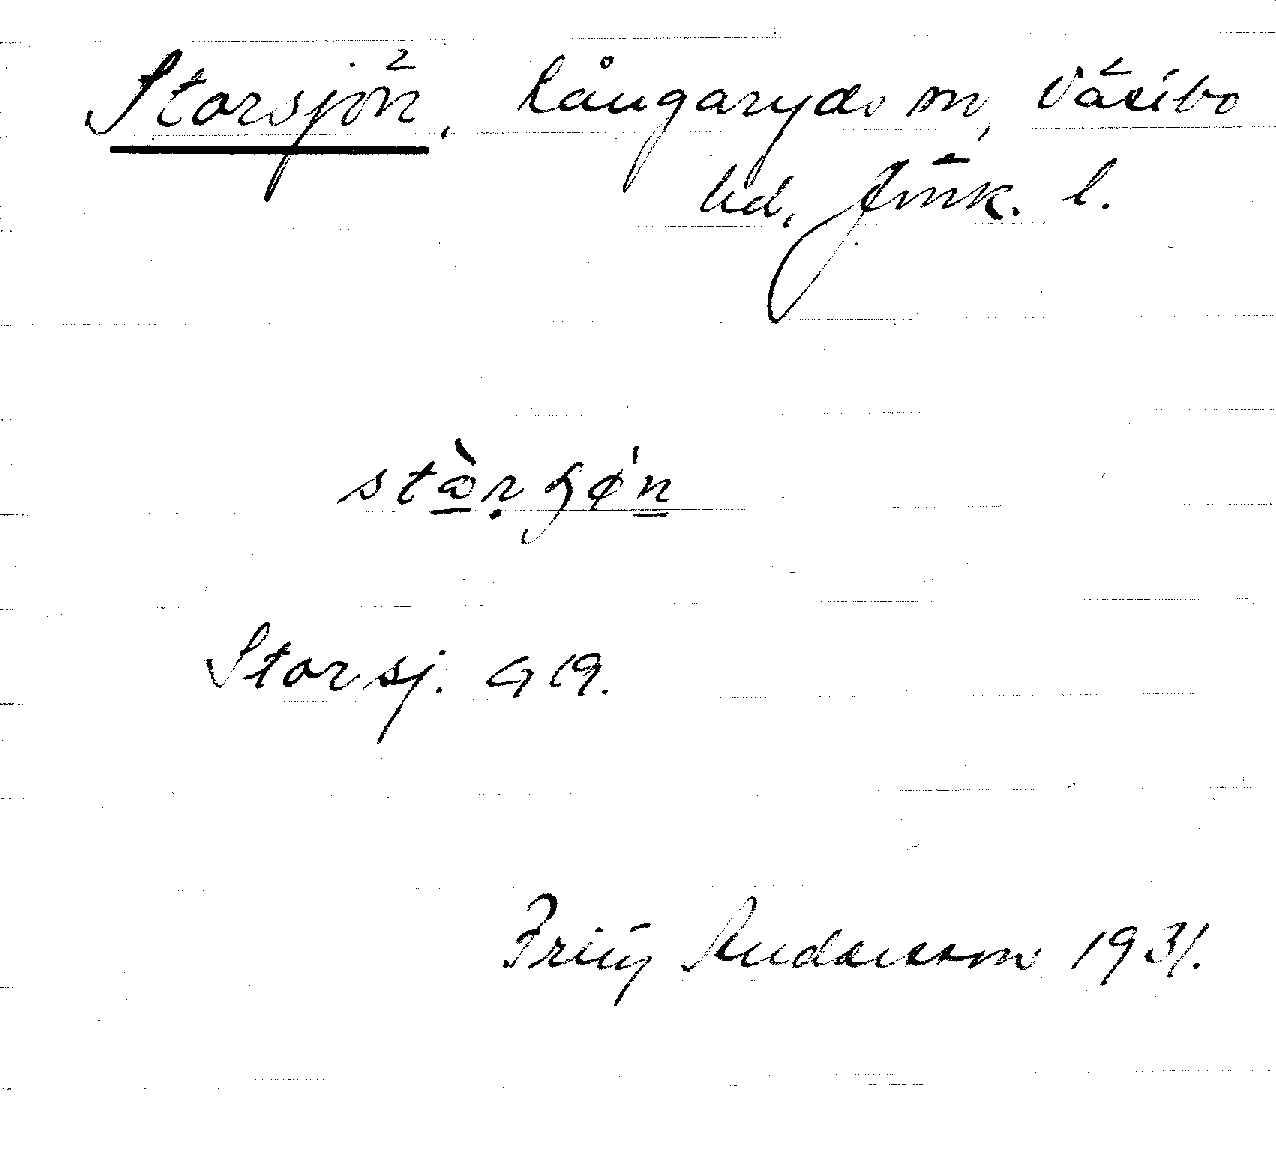 Storsjön, Långaryds sn, Västbo
hd, Jönk. l.
Storsj. G 19.
Fritz Andersson 1931.